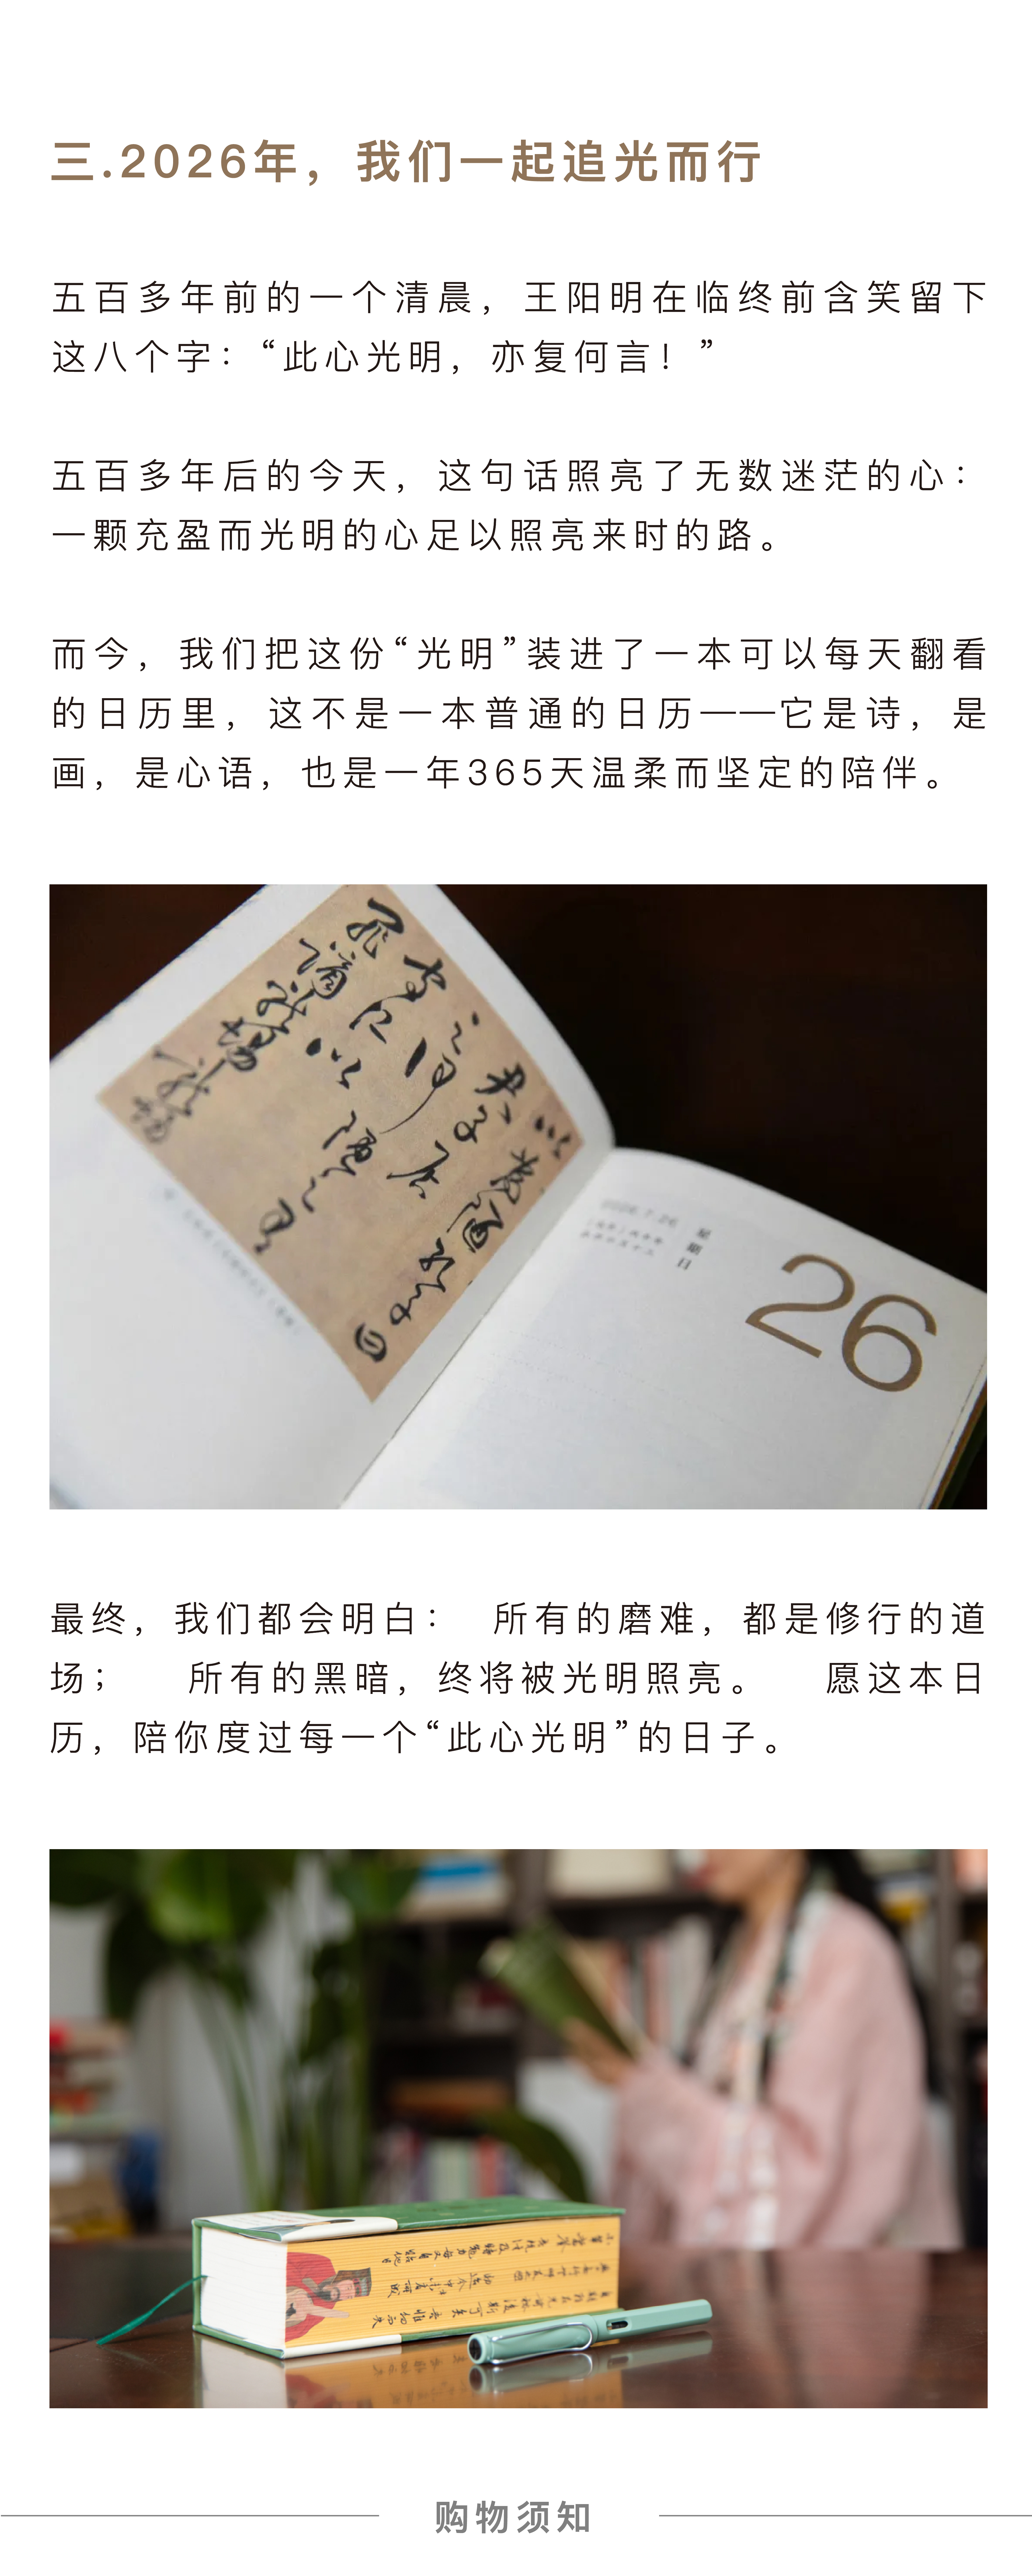 三.2026年，我们一起追光而行
五百多年前的一个清晨，王阳明在临终前含笑留下
这八个字：“此心光明，亦复何言！”
五百多年后的今天，这句话照亮了无数迷茫的心：
一颗充盈而光明的心足以照亮来时的路。
而今，我们把这份“光明”装进了一本可以每天翻看
的日历里，这不是一本普通的日历——它是诗，是
画，是心语，也是一年365天温柔而坚定的陪伴。
星期日
26
最终，我们都会明白： 所有的磨难，都是修行的道
场； 所有的黑暗，终将被光明照亮。 愿这本日
历，陪你度过每一个“此心光明”的日子。
购物须知